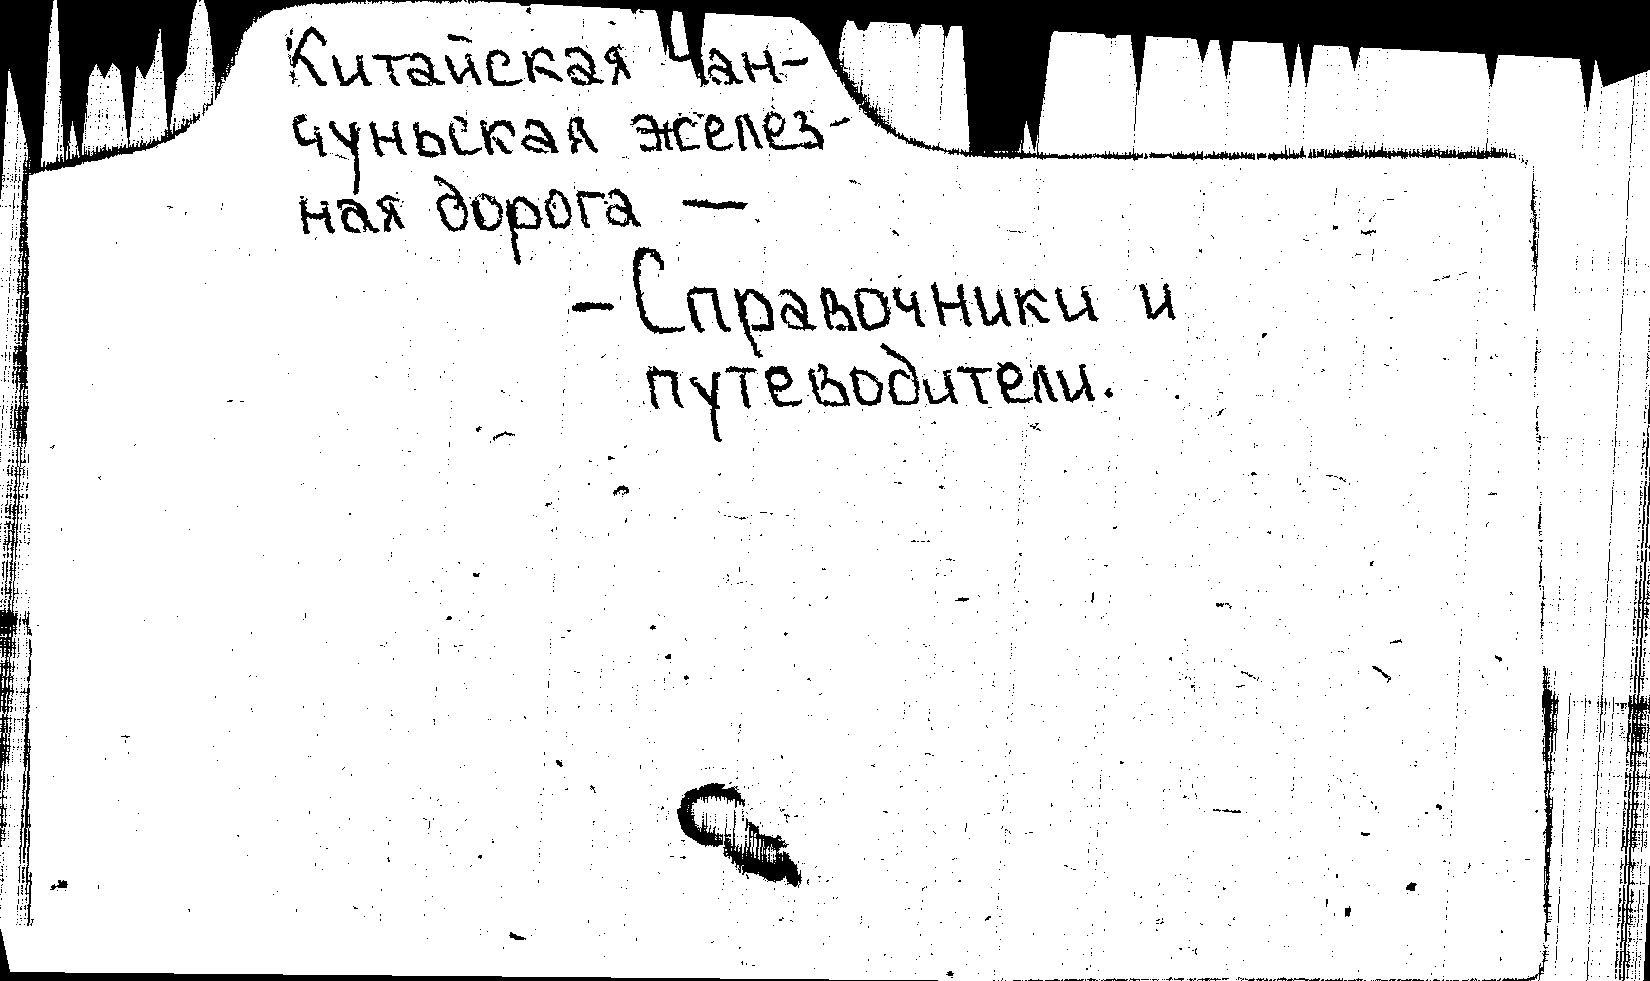 Китайская Чан-
чуньская желез-
ная дорога —
— Справочники и
путеводители.